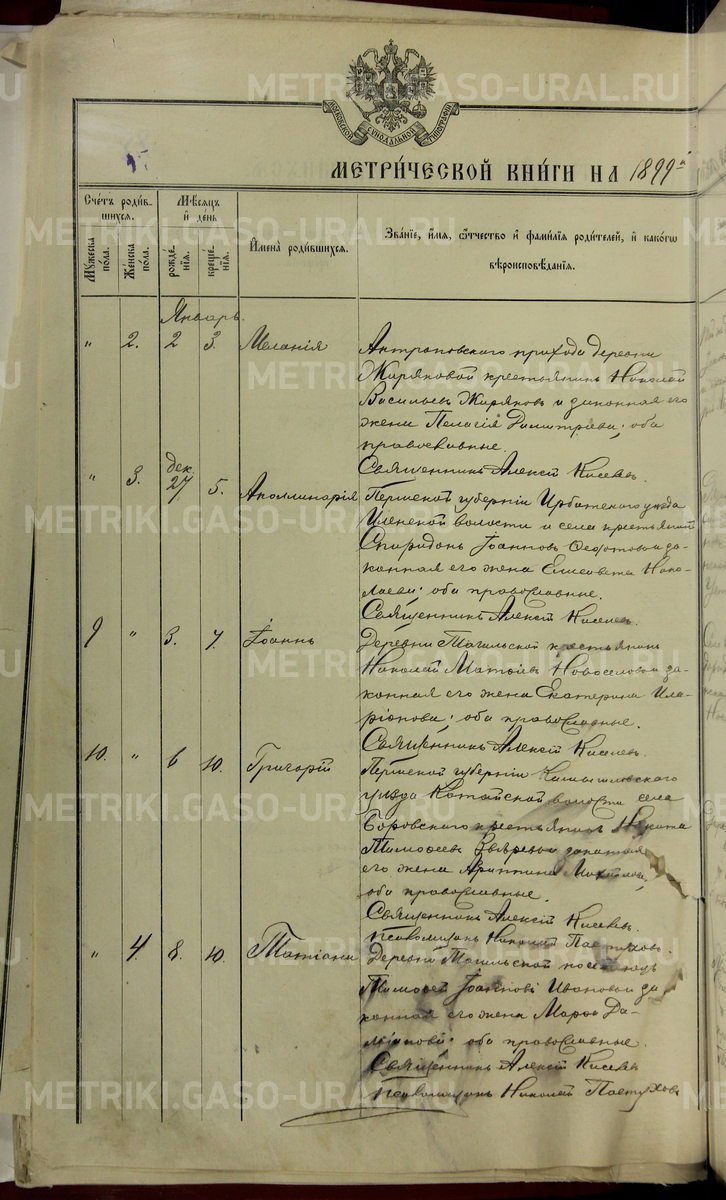 METRIKI.GASO-URAL.RU
МОСКОВСКОЙ СѴНОДАЛЬНОЙ ТИПОГРАФІИ
МЕТРИ́ЧЕСКОЙ КНИ́ГИ НА 1899й
Сче́тъ роди́в-
шихся.
Мѣ́сяцъ
и҆ де́нь
Му́жеска
по́ла.
Же́нска
по́ла.
рожде́-
нїя.
креще́-
нїя.
И҆мена̀ роди́вшихся.
Зва́нїе, и҆́мя, ѻ҆́тчество и҆ фами́лїя роди́телей, и҆ како́гѡ
вѣроисповѣ́данїя.
Январь.
„ 2. 2 3. Меланія
Антроповскаго прихода деревни
Жиряковой крестьянинъ Николай
Васильевъ Жиряковъ и законная его
жена Пелагія Димитріева; оба
православные.
Священникъ Алексій Киселевъ.
„ 3. дек. 27 5. Аполлинарія
Пермской губерніи Ирбитскаго уѣзда
волости и села крестьянинъ
Спиридонъ Іоанновъ Ѳедотовъ и за-
конная его жена Елисавета Нико-
лаева; оба православные.
Священникъ Алексій Киселевъ.
9 „ 3. 7. Іоаннъ
Деревни Тагильской крестьянинъ
Николай Новоселовъ и за-
конная его жена Екатерина Ила-
ріонова; оба православные.
Священникъ Алексій Киселевъ.
10. „ 6 10. Григорій
Пермской губерніи Камышловскаго
уѣзда Катайской волости села
Боровскаго крестьянинъ Никита
Тимоѳеевъ Звѣревъ и законная
его жена
оба православные.
Священникъ Алексій Киселевъ.
Псаломщикъ Николай Пастуховъ.
„ 4 8. 10. Татіана
Деревни Тагильской
Тимоѳей Іоанновъ Ивановъ и за-
конная его жена Марѳа Да-
міанова; оба православные.
Священникъ Алексій Киселевъ
Псаломщикъ Николай Пастуховъ